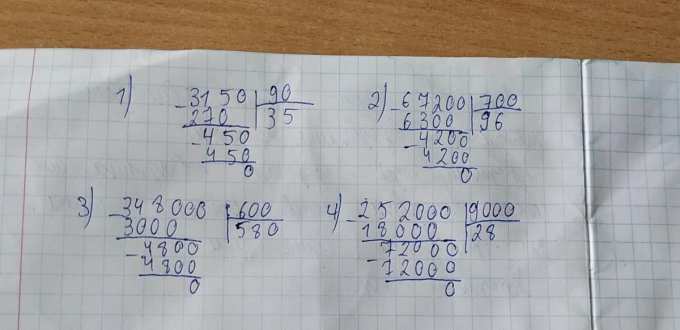 1) 3150 | 90
- 270 | 35
- 450
450
0
2) 67200 | 700
- 6300 | 96
- 4200
4200
0
3) 348000 | 600
- 3000 | 580
- 4800
4800
0
4) 252000 | 9000
- 18000 | 28
- 72000
72000
0